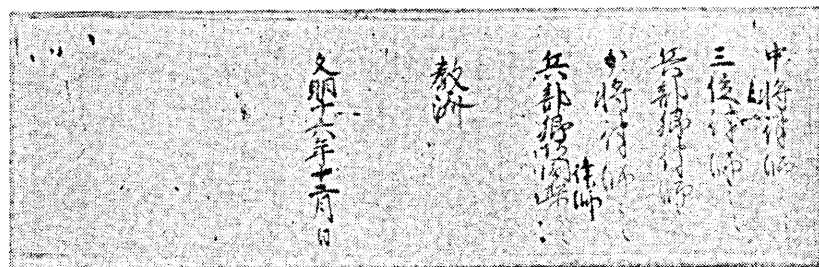 中将律師
三位律師
兵部卿律師
少将律師
兵部卿阿闍梨
律師
教済
文明十六年十二月日